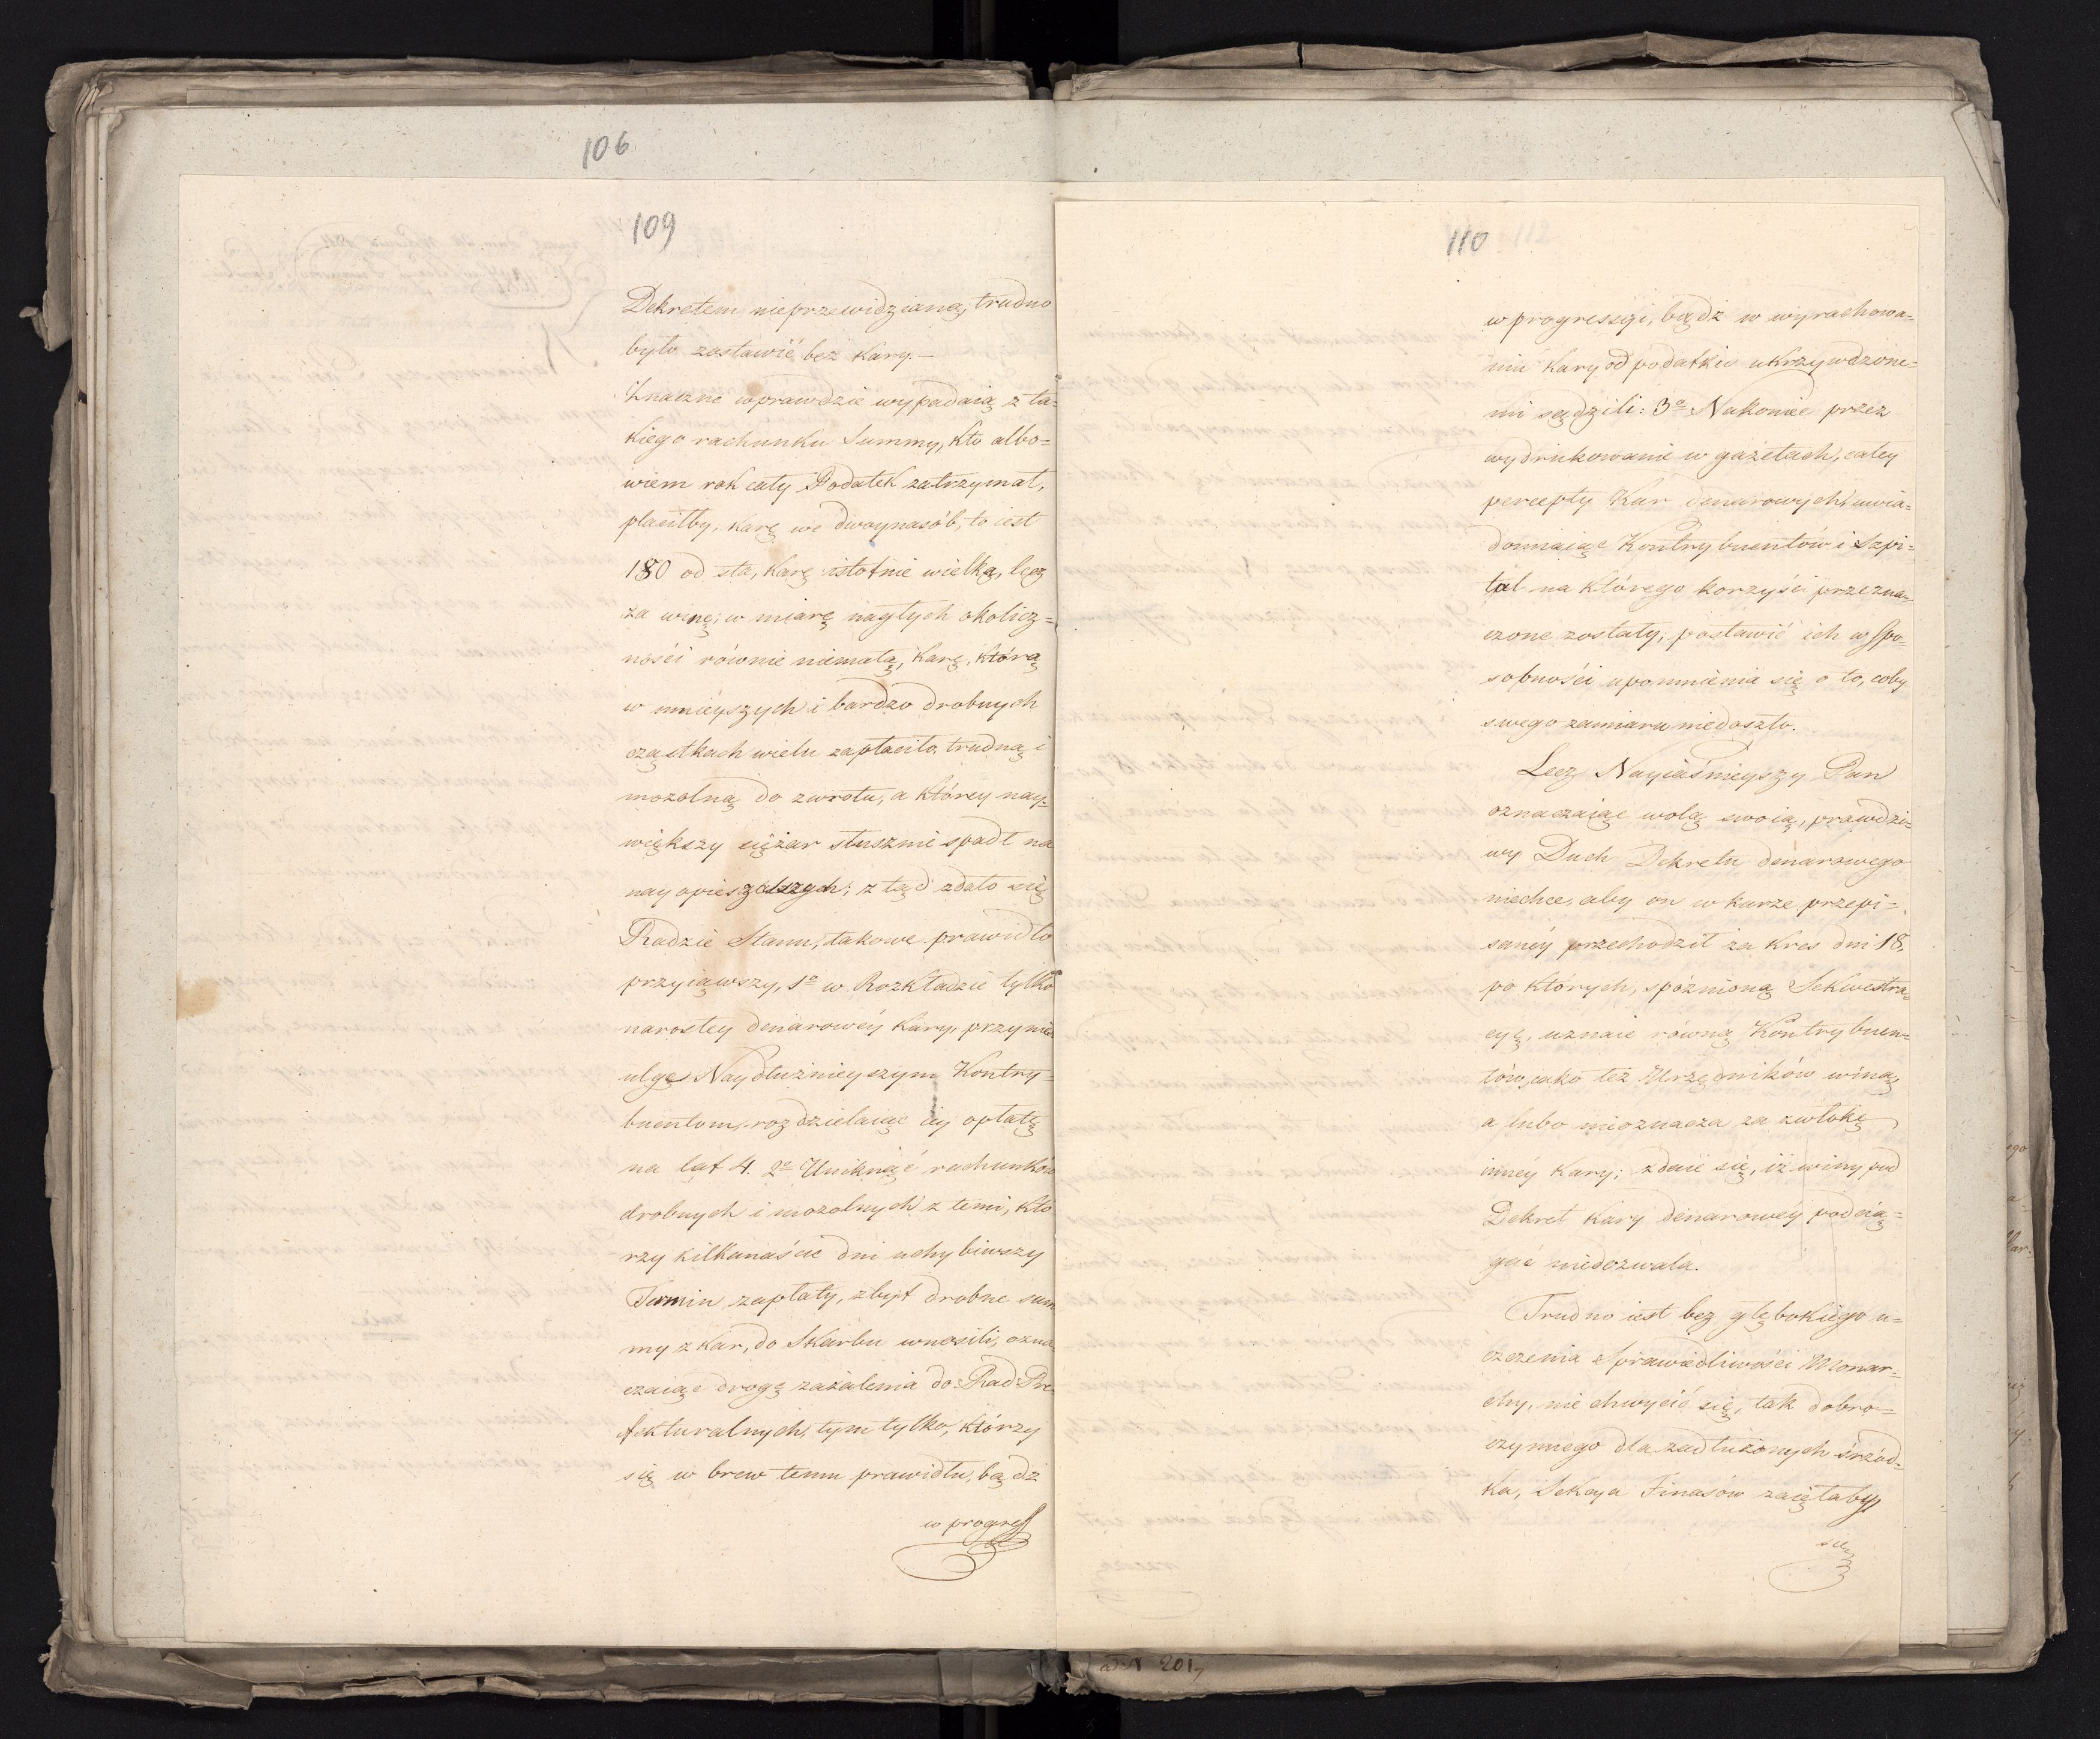 106
109
Dekretem nieprzewidzianą, trudno
było zostawić bez kary. —
Znaczne wprawdzie wypadaią z ta=
kiego rachunku Summy, kto albo=
wiem rok cały Podatek zatrzymał,
płaciłby, karę we dwoynasób, to iest
180 od sta, karę istotnie wielką, lecz
za winę; w miarę nagłych okolicz=
ności równie niemałą, karę, którą
w mnieyszych i bardzo drobnych
cząstkach wielu zapłaciło, trudną i
mozolną do zwrotu, a którey nay=
większy ciężar słusznie spadł na
nayopieszalszych; z tąd zdało się
Radzie Stanu, takowe prawidło
przyiąwszy, 1o w Rozkładzie tylko
narosłey denarowéy kary, przynieść
ulgę Naydłużnieyszym Kontry=
buentom, rozdzielaiąc iey opłatę
na lat 4. 2o Uniknąć rachunków
drobnych i mozolnych z temi, któ
rzy kilkanaście dni uchybiwszy
Termin zapłaty, zbyt drobne sum
my z kar, do Skarbu wnosili, ozna
czaiąc drogę zażalenia do Rad Pre
fekturalnych, tym tylko, którzy
się w brew temu prawidłu, bądź
w progress
110
w progressyi, bądź w wyrachowa=
niu kary od podatku ukrzywdzone=
mi sądzili: 3o Nakoniec przez
wydrukowanie w gazetach, całey
percepty Kar denarowych, uwia=
domiaiąc Kontrybuentów i Szpi=
tal na którego korzyści przezna=
czone zostały; postawić ich w spo=
sobności upomnienia się o to, coby
swego zamiaru niedoszło.
Lecz Nayiaśnieyszy Pan
oznaczaiąc wolą swoią, prawdzi=
wy Duch Dekretu denarowego
niechce, aby on w karze przepi=
sanéy przechodził za kres dni 18,
po których, spóźnioną Sekwestra=
cyę, uznaie równą Kontrybuen=
tów, iako też Urzędników winą,
a lubo nieoznacza za zwłokę
innéy kary; zdaie się, iż winy pod
Dekret kary denarowéy podcią=
gać niedozwala.
Trudno iest bez głębokiego u=
czczenia Sprawiedliwości Monar=
chy, nie chwycić się, tak dobro=
czynnego dla zadłużonych śrzód=
ka, Sekcya Finasów zaięłaby
się
ad N 201